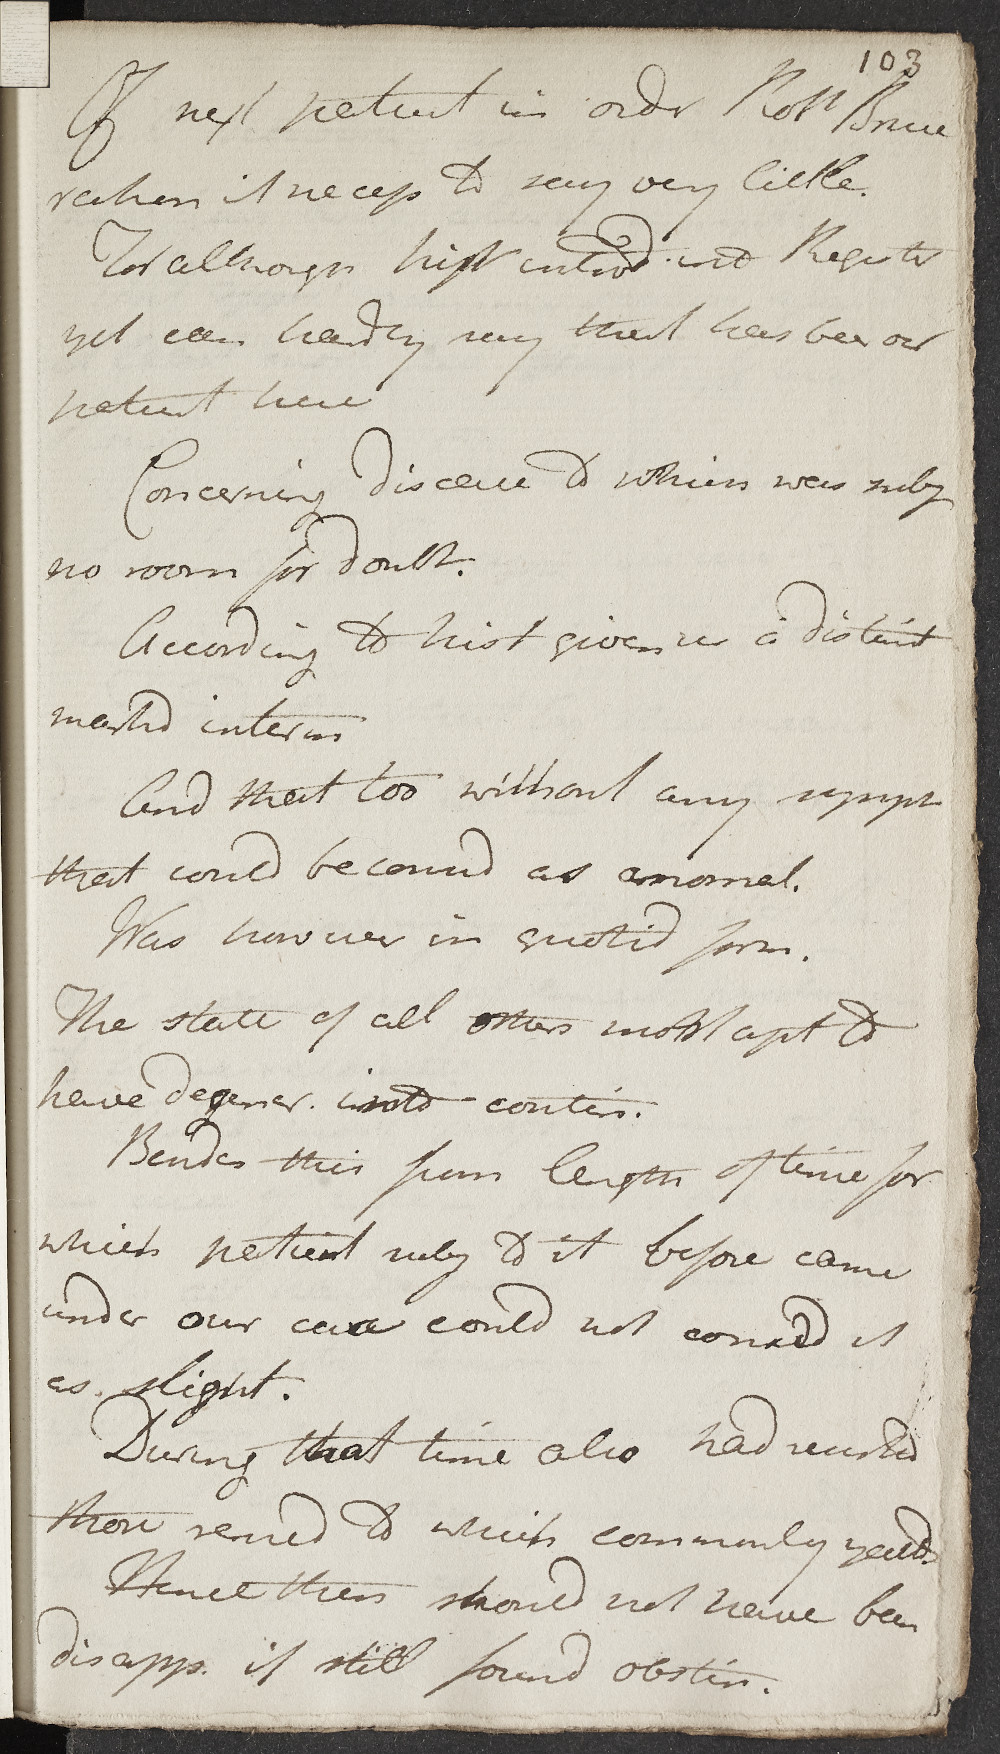 103
Of next patient in order Robt Bruce
reckon it necess to say very little.
For although hist introd into Register
yet can hardly say that has been our
patient here
Concerning disease to which was subj
no room for doubt.
According to hist given us a distinct
markd interm
And that too without any sympt
that could be consid as anomal.
Was however in quotid form.
The state of all others most apt to
have degener. into contin.
Besides this from length of time for
which patient subj to it before came
under our care could not consid it
as slight.
During that time also had resisted
those remed to which commonly yields
Hence then should not have been
disapp. if still found obstin.